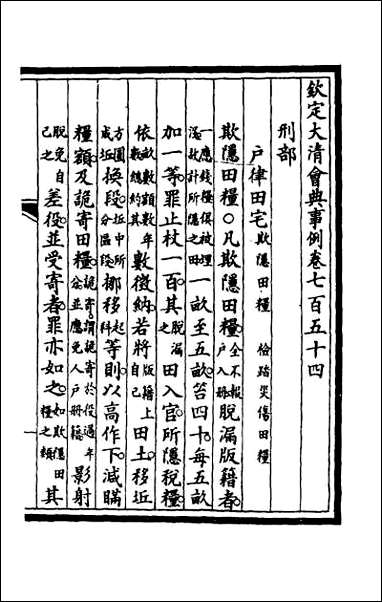 欽定大清會典事例卷七百五十四
刑部
戶律田宅 欺隱田糧 檢踏災傷田糧
欺隱田糧○凡欺隱田糧全不報戶入冊脫漏版籍者
一應錢糧俱被埋沒故計所隱之田一畝至五畝笞四十每五畝
加一等罪止杖一百其脫漏之田入官所隱稅糧
依畝數額數年數總約其數徵納若將版籍上自己田土移坵
方圓成坵換段坵中所分區段挪移起科等則以高作下減瞞
糧額及詭寄田糧詭寄謂詭寄於役過年分並應免人戶冊籍影射
脫免自己之差役並受寄者罪亦如之如欺隱田糧之類其